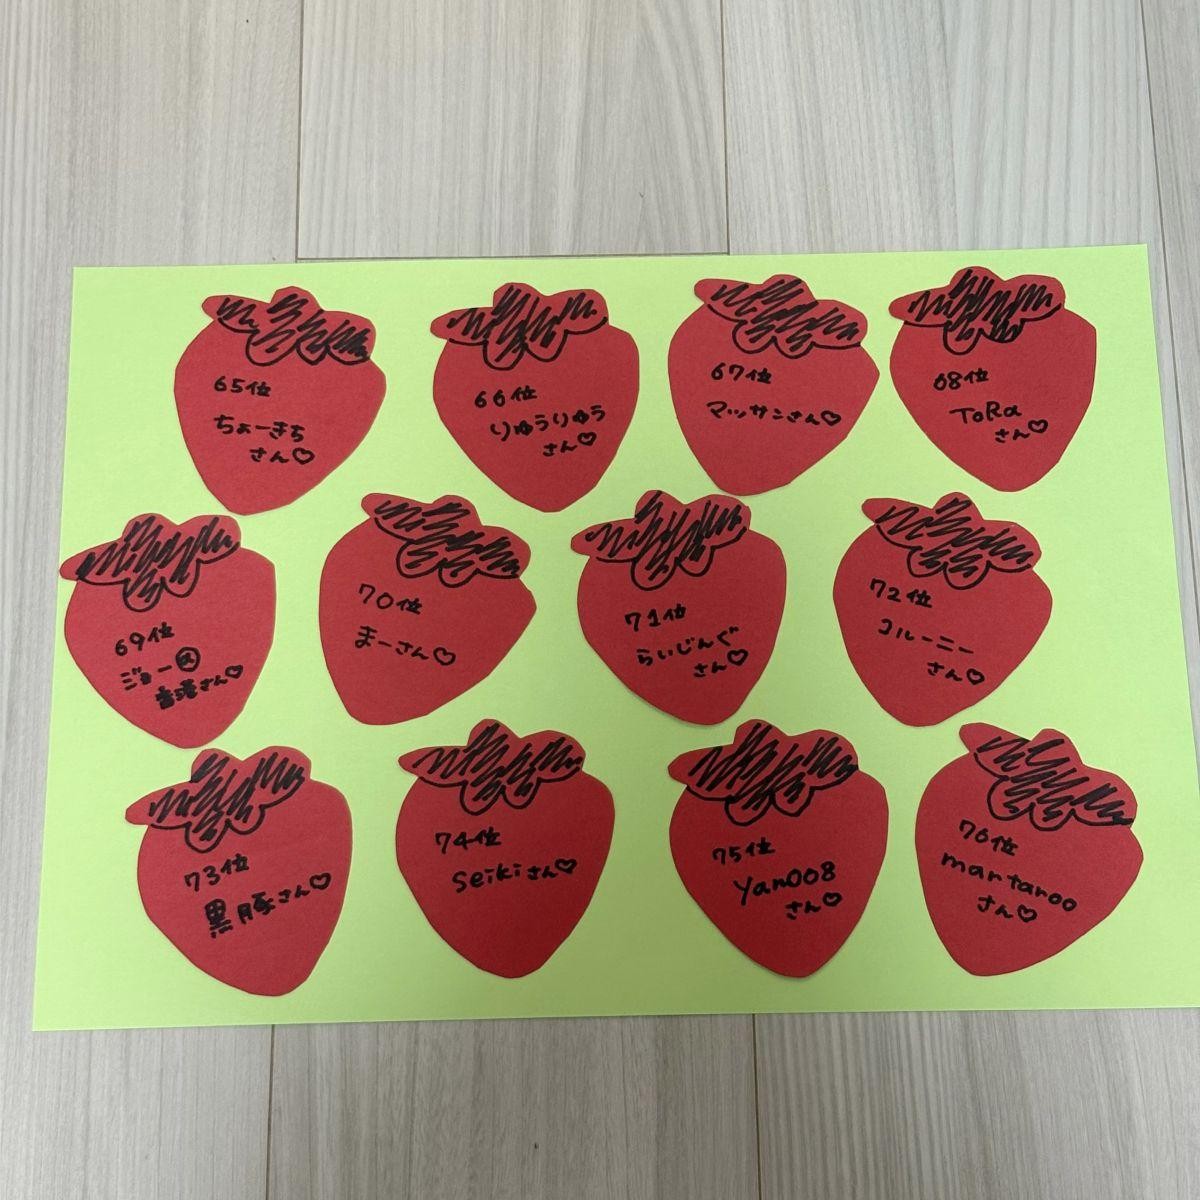 65位
ちょーきち
さん♡
66位
りゅうりゅう
さん♡
67位
マッサンさん♡
68位
ToRa
さん♡
69位
ジョー@
香港さん♡
70位
まーさん♡
71位
らいじんぐ
さん♡
72位
コルーニー
さん♡
73位
黒豚さん♡
74位
seikiさん♡
75位
yan008
さん♡
76位
martaroo
さん♡